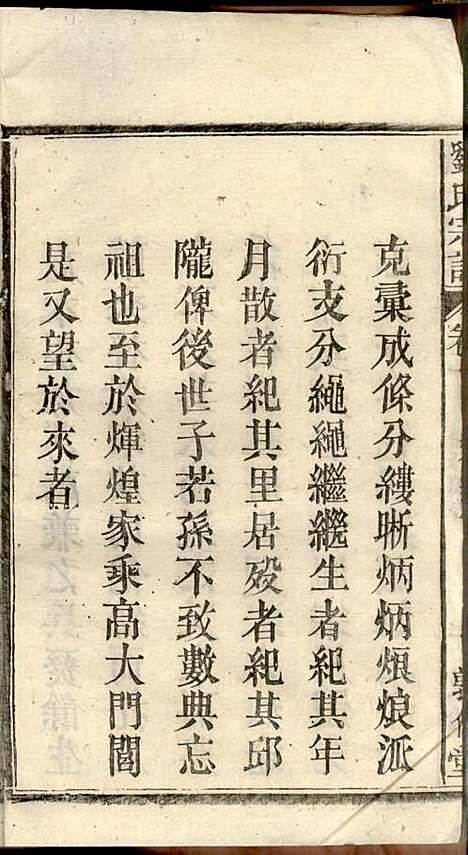 克彚成條分縷晰炳炳烺烺派
衍支分繩繩繼繼生者紀其年
月散者紀其里居歿者紀其邱
隴俾後世子若孫不致數典忘
祖也至於煇煌家乘高大門閭
是又望於來者
劉氏宗譜
卷